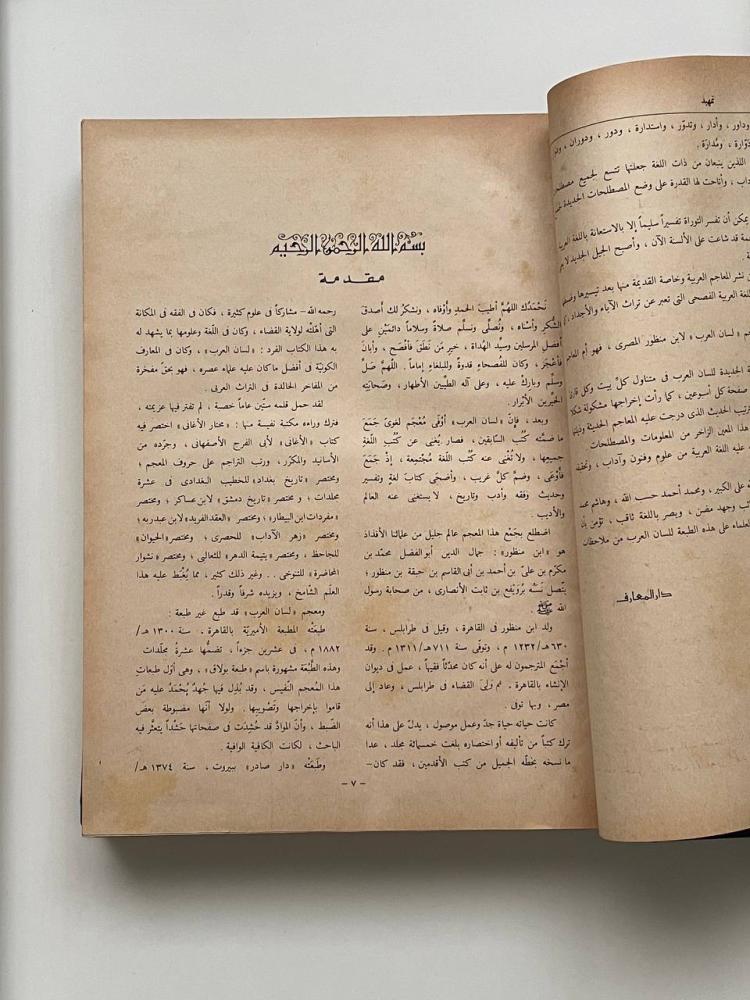 بسم الله الرحمن الرحيم
مقدمة
نَحْمَدُك اللهُمَّ أطيبَ الحمدِ وأوْفاه ، ونشكرُ لك أصدقَ
الشُّكرِ وأسْناه ، ونُصلِّى ونسلِّم صلاةً وسلاماً دائمَيْنِ على
أفضلِ المرسلين وسيِّدِ الهُداة ، خيرِ مَن نَطَقَ فأفْصَح ، وأبانَ
فأعْجَز ، وكان للفُصحاءِ قدوةً وللبلغاءِ إماماً . اللهُمَّ صَلِّ
وسلِّم وباركْ عليه ، وعلى آله الطيِّبين الأطهار ، وصَحابَتِه
الخيِّرين الأبْرار .
وبعد ، فإنَّ «لسان العرب» أوْفَى مُعْجَمٍ لغوىّ جَمَعَ
ما ضمَّتْه كُتُب السَّابقين ، فصار يُغْنى عن كُتُبِ اللّغةِ
جميعِها ، ولا تُغْنى عنه كُتُب اللغة مُجْتَمِعة ، إذْ جَمَعَ
فأوْعَى ، وضمَّ كلَّ غريب ، وأضحَى كتابَ لغةٍ وتفسيرٍ
وحديثٍ وفقه وأدب وتاريخ ، لا يستغنى عنه العالم
والأديب .
اضطلع بجَمْعِ هذا المعجم عالم جليل من علمائنا الأفذاذ
هو «ابن منظور» : جمال الدين أبو الفضل محمّد بن
مكرّم بن علىّ بن أحمد بن أبى القاسم بن حبقة بن منظور ؛
يتّصل نَسَبُه برُوَيْفِع بن ثابت الأنصارى ، من صحابة رسول
الله ﷺ .
ولد ابن منظور فى القاهرة ، وقيل فى طرابلس ، سنة
٦٣٠هـ/١٢٣٢ م ، وتوفّى سنة ٧١١هـ/١٣١١ م . وقد
أجْمَع المترجمون له على أنه كان محدّثاً فقيهاً ، عمل فى ديوان
الإنشاء بالقاهرة . ثم وَلِىَ القضاء فى طرابلس ، وعاد إلى
مصر ، وبها توفى .
كانت حياته حياة جدّ وعمل موصول ، يدلّ على هذا أنه
ترك كتباً من تأليفه أو اختصاره بلغت خمسمائة مجلد ، عدا
ما نسخه بخطّه الجميل من كتب الأقدمين ، فقد كان –
رحمه الله – مشاركاً فى علوم كثيرة ، فكان فى الفقه فى المكانة
التى أهّلتْه لولاية القضاء ، وكان فى اللّغة وعلومها بما يشهد له
به هذا الكتاب الفرد : «لسان العرب» ، وكان فى المعارف
الكونيّة فى أفضل ما كان عليه علماء عصره ، فهو بحقّ مفخرة
من المفاخر الخالدة فى التراث العربى .
لقد حمل قلمه ستّين عاماً خصبة ، لم تفتر فيها عزيمته ،
فترك وراءه مكتبة نفيسة منها : «مختار الأغانى» اختصر فيه
كتاب «الأغانى» لأبى الفرج الأصفهانى ، وجرّده من
الأسانيد والمكرّر ، ورتب التراجم على حروف المعجم ؛
ومختصر «تاريخ بغداد» للخطيب البغدادى فى عشرة
مجلدات ؛ ومختصر «تاريخ دمشق» لابن عساكر ؛ ومختصر
«مفردات ابن البيطار» ؛ ومختصر «العقد الفريد» لابن عبد ربه ؛
ومختصر «زهر الآداب» للحصرى ؛ ومختصر «الحيوان»
للجاحظ ، ومختصر «يتيمة الدهر» للثعالبى ، ومختصر «نشوار
المحاضرة» للتنوخى . . وغير ذلك كثير ، مما يُغْبَط عليه هذا
العلَم الشّامخ ، ويزيده شرفاً وقدراً .
ومعجم «لسان العرب» قد طبع غير طبعة :
طبعَتْه المطبعة الأميريّة بالقاهرة ، سنة ١٣٠٠ هـ/
١٨٨٢ م ، فى عشرين جزءاً ، تضمُّها عشرةُ مجلّدات
وهذه الطَّبْعَة مشهورة باسم «طبعة بولاق» ، وهى أوّل طبعاتِ
هذا المُعجم النَّفيس ، وقد بُذِل فيها جُهدٌ يُحْمَدُ عليه مَن
قاموا بإخراجها وتَصْويبها . ولولا أنّها مضبوطة بعضَ
الضّبط ، وأنّ الموادّ قد حُشِدَت فى صفحاتها حَشْداً يتعثّر فيه
الباحث ، لكانت الكافية الوافية .
وطبَعَتْه «دار صادر» ببيروت ، سنة ١٣٧٤ هـ/
– ٧ –
تمهيد
وداور ، وأدار ، وتدوّر ، واستدارة ، ودور ، ودوران ،
دوّارة ، ومُدارَة .
اللذين ينبعان من ذات اللغة جعلتها تتسع لجميع
وأتاحت لها القدرة على وضع المصطلحات الجديدة
يمكن أن تفسر التوراة تفسيراً سليماً إلا بالاستعانة باللغة
قد شاعت على الألسنة الآن ، وأصبح الجيل الجديد
نشر المعاجم العربية وخاصة القديمة منها بعد تيسيرها
العربية الفصحى التى تعبر عن تراث الآباء والأجداد
«لسان العرب» لابن منظور المصرى ، فهو أم
الجديدة للسان العرب فى متناول كلّ بيت وكل
صفحة كل أسبوعين ، كما رأت إخراجها مشكولة
الحديث الذى درجت عليه المعاجم الحديثة
هذا المعين الزاخر من المعلومات والمصطلحات
عليه اللغة العربية من علوم وفنون وآداب ،
على الكبير ، ومحمد أحمد حسب الله ، وهاشم
وجهد مضن ، وبصر باللغة ثاقب ، تؤمن
العلماء على هذه الطبعة للسان العرب من ملاحظات
دار المعارف